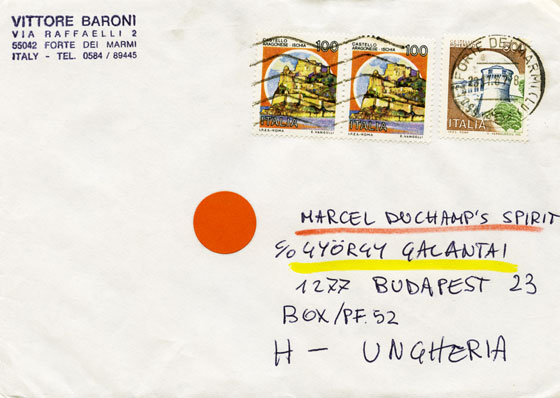 VITTORE BARONI
VIA RAFFAELLI 2
55042 FORTE DEI MARMI
ITALY - TEL. 0584 / 89445
CASTELLO
ARAGONESE - ISCHIA
100
ITALIA
I.P.Z.S.-ROMA
E. VANGELLI
CASTELLO
ARAGONESE - ISCHIA
100
ITALIA
I.P.Z.S.-ROMA
E. VANGELLI
FORTE DEI MARMI
ITALIA
MARCEL DUCHAMP'S SPIRIT
C/O GYÖRGY GALANTAI
1277 BUDAPEST 23
BOX/PF. 52
H - UNGHERIA